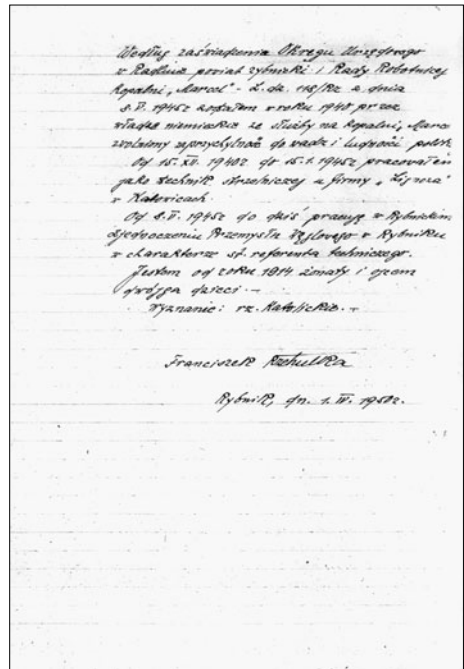 Według zaświadczenia Okręgu Urzędowego
w Radlinie powiat rybnicki i Rady Robotniczej
kopalni „Marcel" - L. dz. 118/Rz z dnia
8.V. 1945r zostałem w roku 1940 przez
władze niemieckie ze służby na kopalni „Marce
zwolniony za przychylność do władz i ludności polsk
Od 15. XII. 1940r. do 15.1.1945r pracowałem
jako technik strzelniczej u firmy „Lignoza"
w Katowicach.
Od 8.II. 1945r do dziś pracuję w Rybnickim
Zjednoczeniu Przemysłu Węglowego w Rybniku
w charakterze st. referenta technicznego.
Jestem od roku 1914 żonaty i ojcem
dwojga dzieci. -
Wyznanie: rz. Katolickie. -
Franciszek Rzehulka
Rybnik, dn. 1. IV. 1950r.